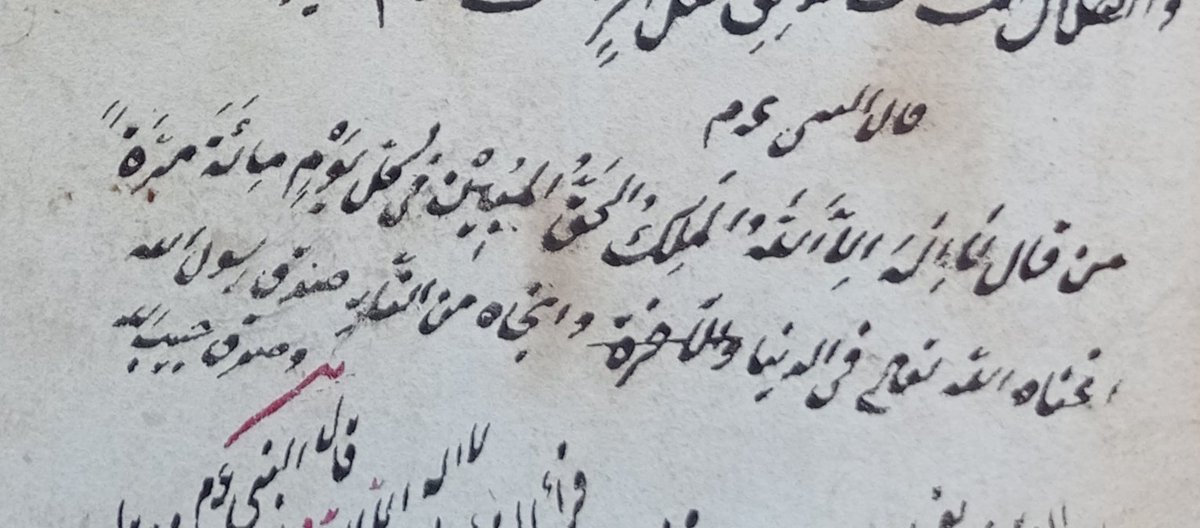 قال النبي عم
من قال لَا إِلَهَ اِلاَّ اللَّهُ الْمَلِكُ الْحَقُّ الْمُبِيْن فى كل يَوْمٍ مِائَةَ مَرَّةً
اغناه اللّه تعالى فى الدنيا والآخرة وانجاه من النَّارِ صدق رسول الله
وصدق حبيب الله
قال النبي عم
لا اله الا